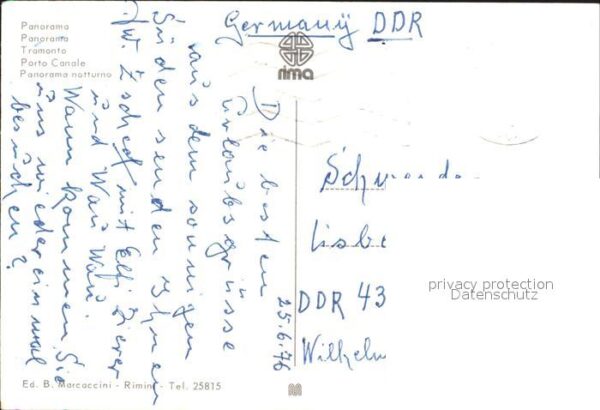 Panorama
Panorama
Tramonto
Porto Canale
Panorama notturno
Germany DDR
rima
25.6.76
Die besten
Urlaubsgrüsse
aus dem sonnigen
Süden senden Ihnen
W. Zscheck mit Elfi Zierer
und Wau Wau.
Wann kommen Sie
uns wieder einmal
besuchen?
Lisbe
DDR 43
Wilhelm
privacy protection
Datenschutz
Ed. B. Marcaccini - Rimini - Tel. 25815